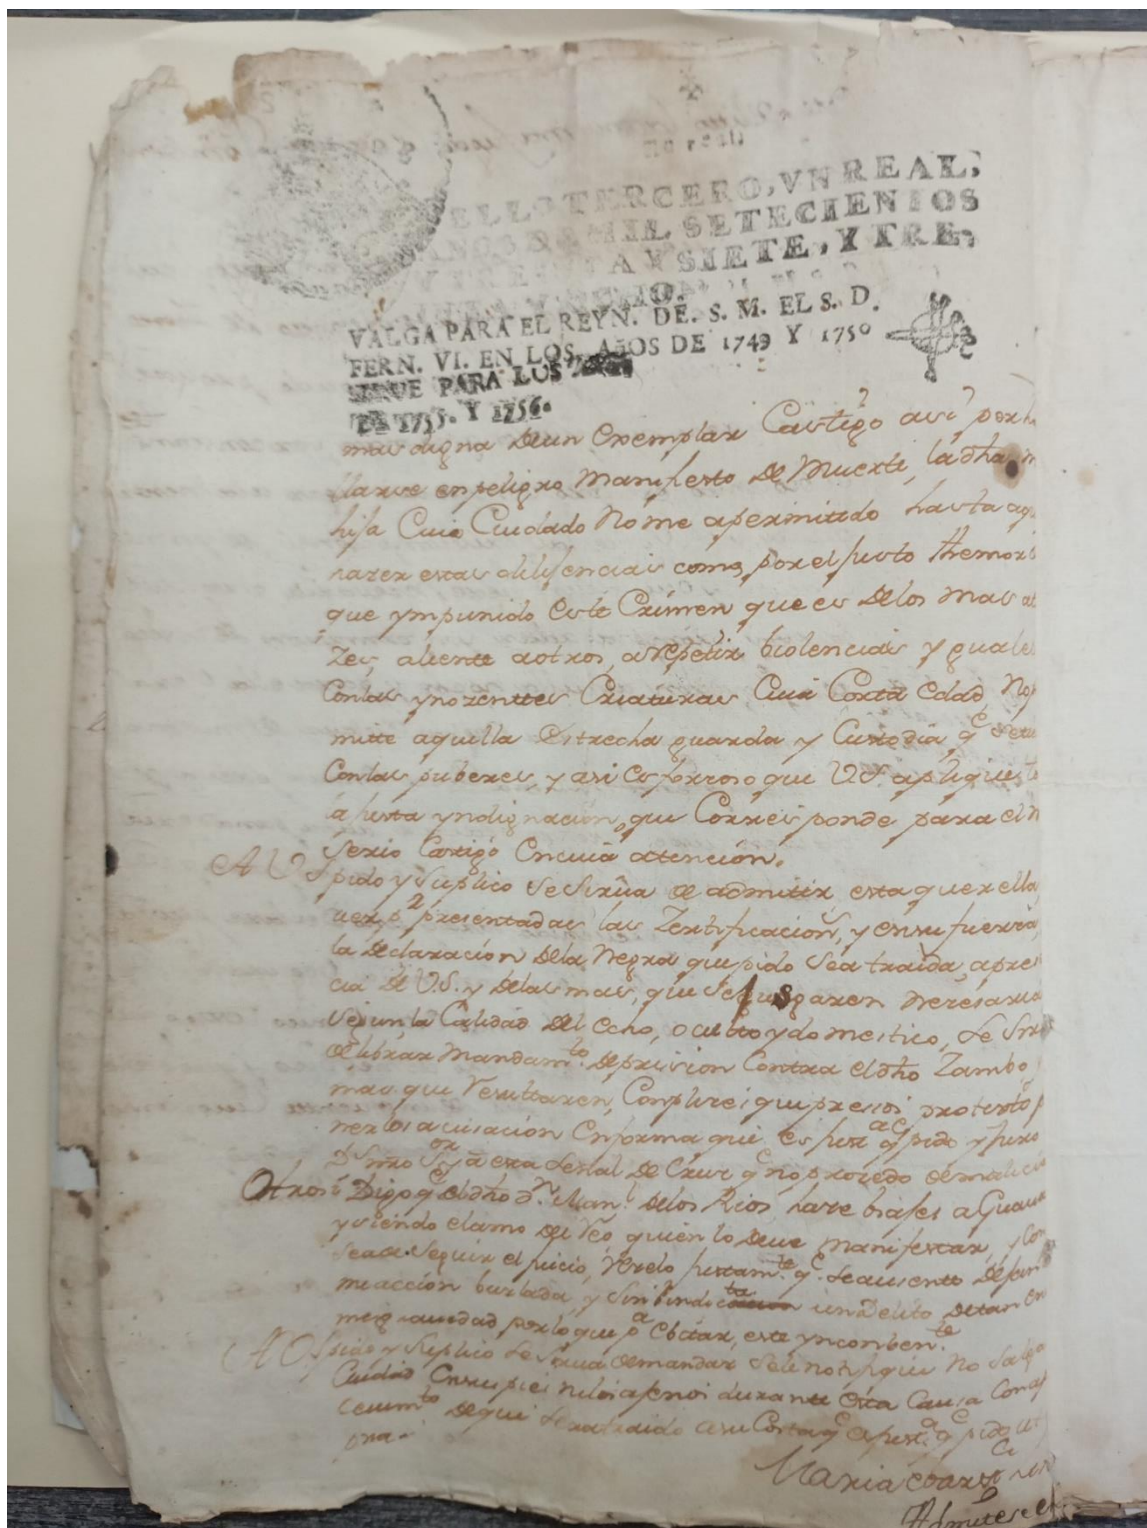 VN REAL
SELLO TERCERO, VN REAL,
AÑOS DE MIL SETECIENTOS
Y TREINTA Y SIETE, Y TRE,
INTA Y OCHO.
VALGA PARA EL REYN. DE. S. M. EL S. D.
FERN. VI. EN LOS AñOS DE 1749 Y 1750
SIRVE PARA LOS
DE 1755. Y 1756.
mas digna de un exemplar Castigo asi por ha
llarse en peligro Manifiesto de Muerte, la dha
hija Cuio Cuidado No me a permitido hasta aqu
hazer estas dilijencias como, por el justo themor
que ympunido este Crimen que es de los mas at
zes, aliente a otros, a repetir biolencias yguales
Con las ynozentes Criaturas, Cuia Corta edad, No
mite aquella estrecha guarda y Custodia q^e se
Con las puberes, y asi es forzoso que V.S. aplique
la justa yndignacion, que Corresponde para el
serio Castigo en cuia atencion.
A V S pido y suplico se sirva de admitir esta querella
por presentadas las Zertificacion^s, y en su fuerza
la declaracion de la Negra que pido sea traida, a pre
cia de V.S. y de las mas, que se jusgaren nesesaria
segun, la Calidad del echo, oculto y domestico, se sir
de librar Mandam^to de prision Contra el dho Zambo
mas que resultaren, Complises que presos protesto
nerlos acusacion en forma que es just^a q^e pido y juro
D^s nro S^or y a esta señal de Cruz q^e no prosedo de malicia
Otrosi Digo q^e el dho d^n Man^l de los Rios, hase biajes a Guaia
y siendo el amo del reo quien lo deve manifestar, y con
seguir el juicio, reselo justam^te q^e se ausente dejan
mi accion burlada, y sin bindicta un delito de tan en
me gravedad por lo que p^a ebitar, este yncomben^te
A V S pido y suplico se sirva de mandar se le notifique No salga
Ciudad en sus pies ni los ajenos durante esta Causa Con ap
cevim^to de que sera traido a su Costa q^e es just^a q^e pido ut
pra.
Maria
Admitese